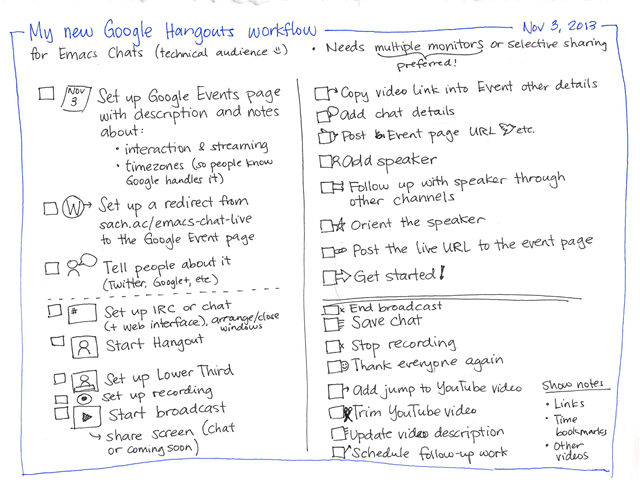 My new Google Hangouts workflow
Nov 3, 2013
for Emacs Chats (technical audience)
• Needs multiple monitors or selective sharing
preferred!
NOV
3
Set up Google Events page
with description and notes
about:
• interaction & streaming
• timezones (so people know
Google handles it)
W
Set up a redirect from
sach.ac/emacs-chat-live
to the Google Event page
Tell people about it
(Twitter, Google+, etc.)
#
Set up IRC or chat
(+ web interface), arrange/close
windows
Start Hangout
Set up Lower Third
Set up recording
Start broadcast
share screen (chat
or coming soon)
Copy video link into Event other details
Add chat details
Post Event page URL etc.
Add speaker
Follow up with speaker through
other channels
Orient the speaker
Post the live URL to the event page
Get started!
End broadcast
Save chat
Stop recording
Thank everyone again
Add jump to YouTube video
Trim YouTube video
Update video description
Schedule follow-up work
Show notes
• Links
• Time
bookmarks
• Other
videos